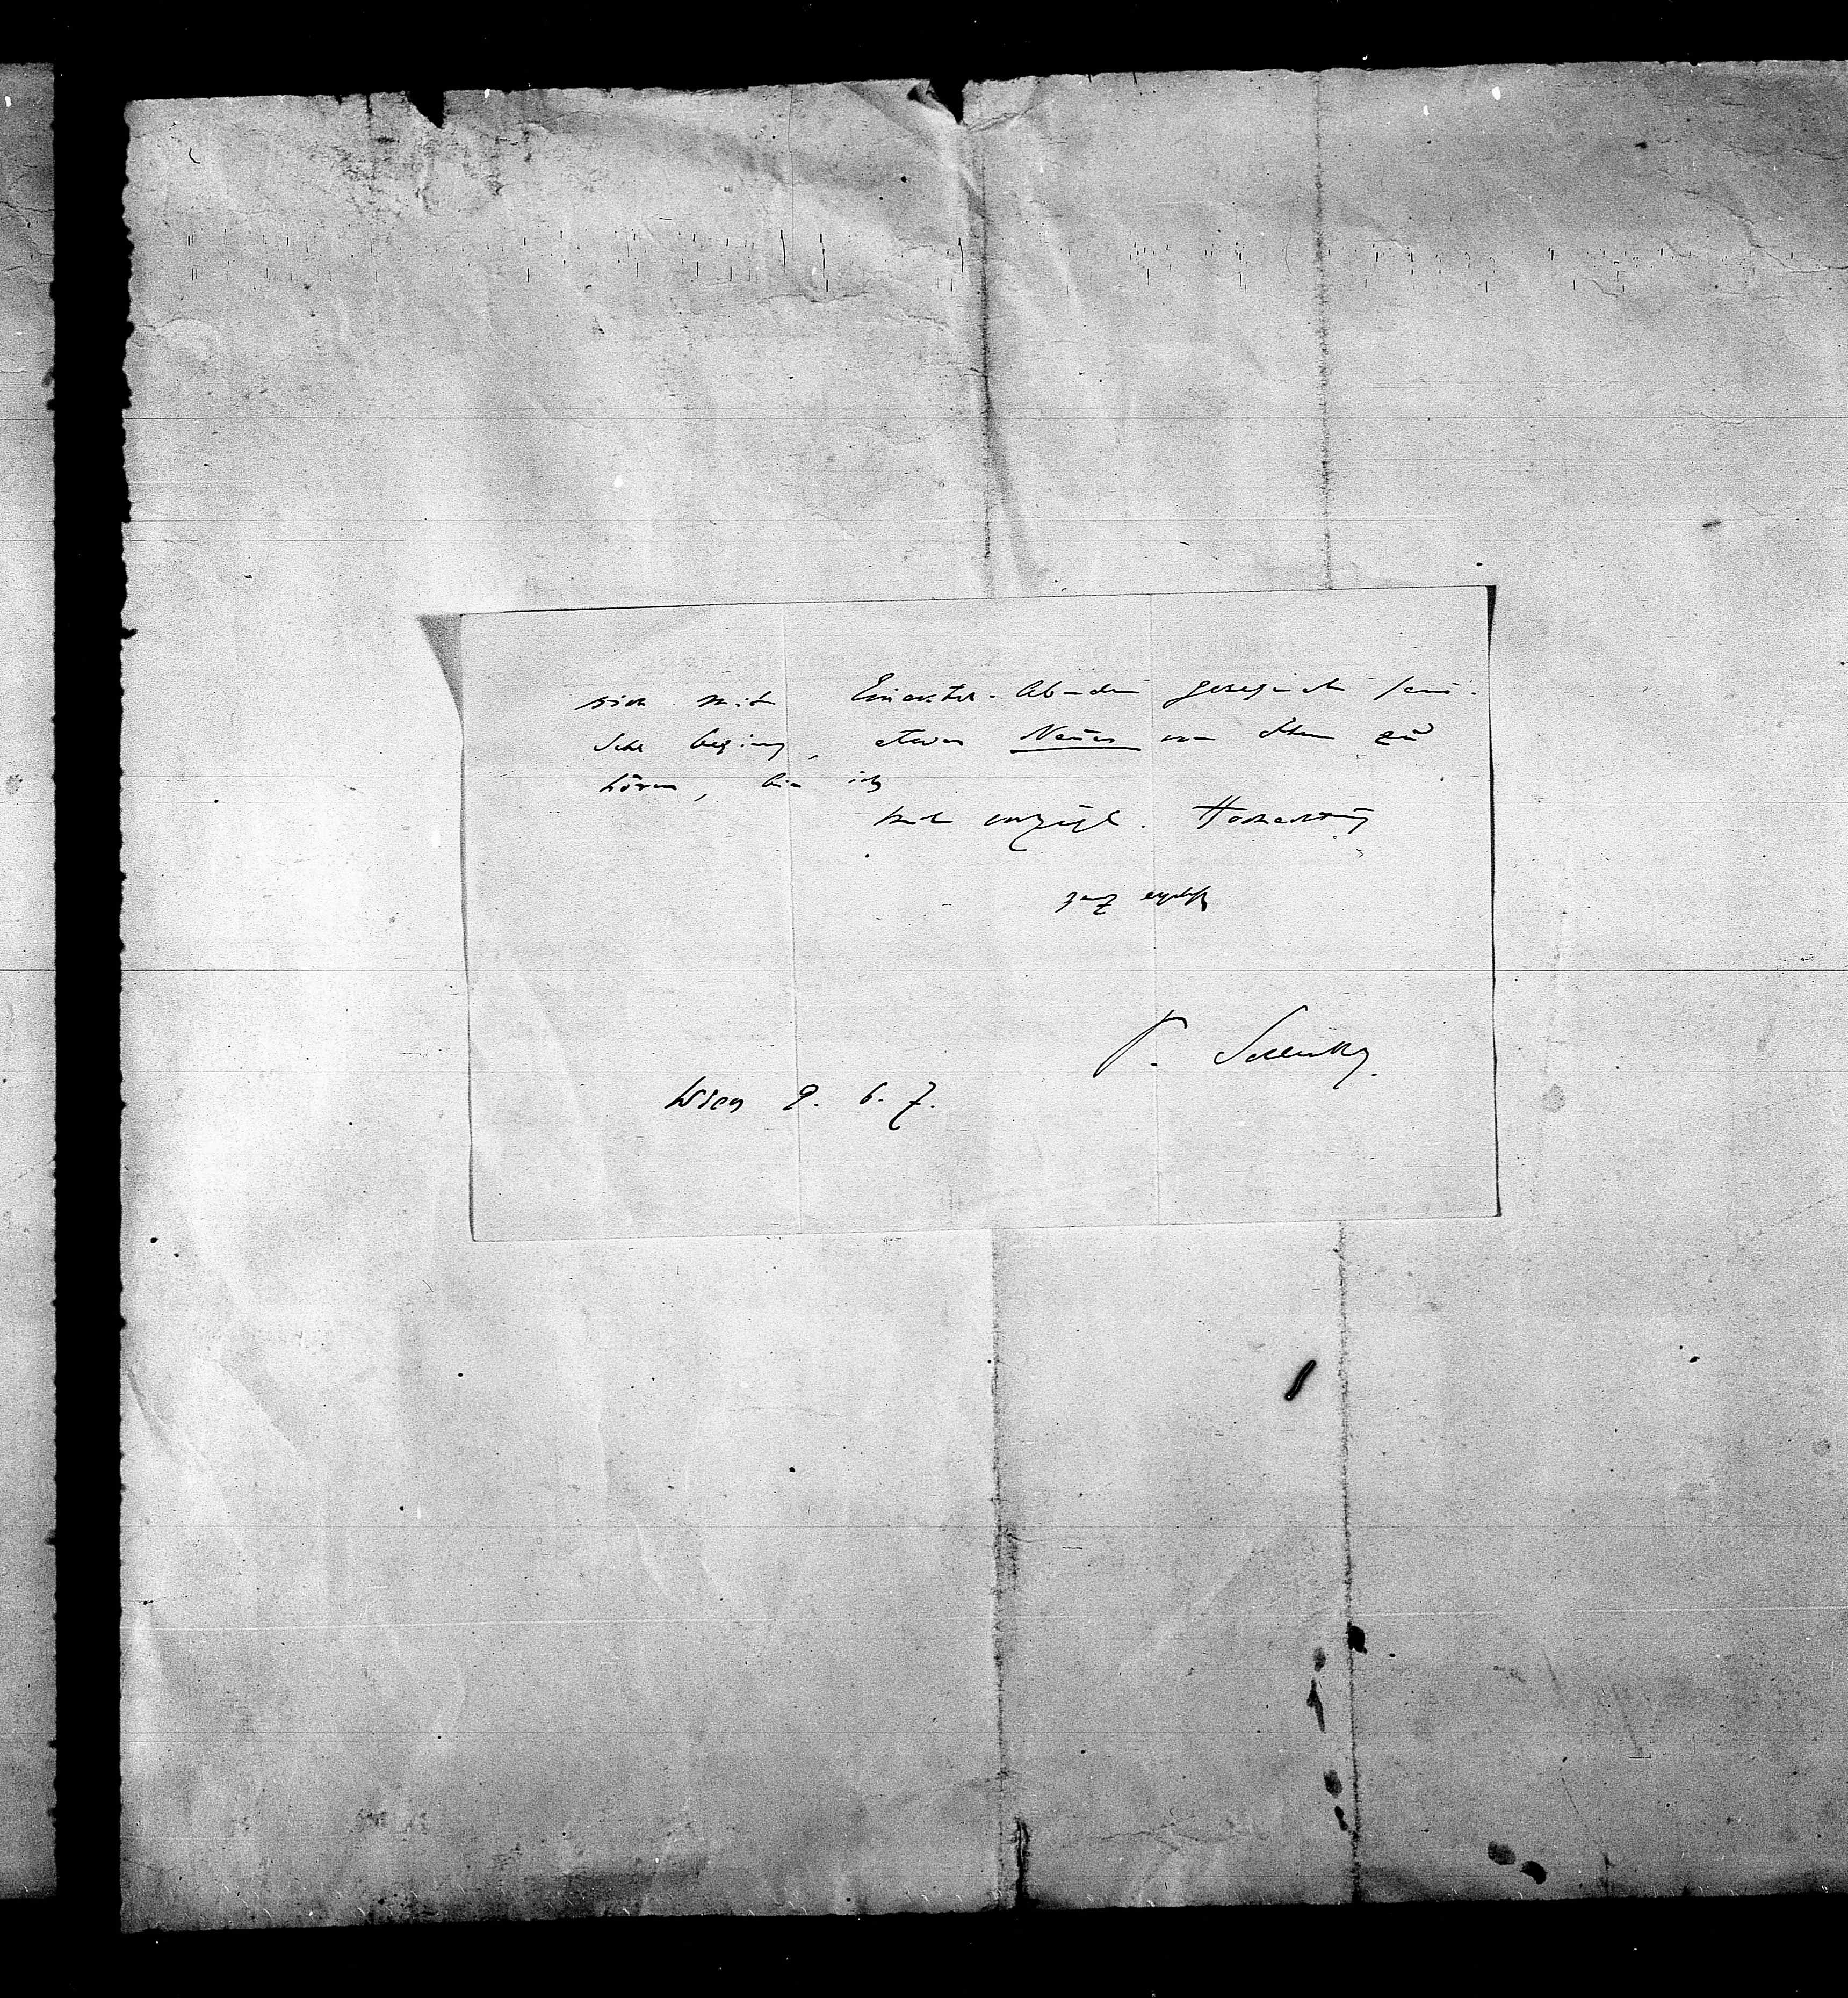 sich mit Einakter-Abenden gesegnet sein.
Sehr begierig, etwas Neues von Ihnen zu
hören, bin ich
mit vorzügl. Hochachtung
ganz ergebenst
P. Schlenther.
Wien 9. 6. 7.